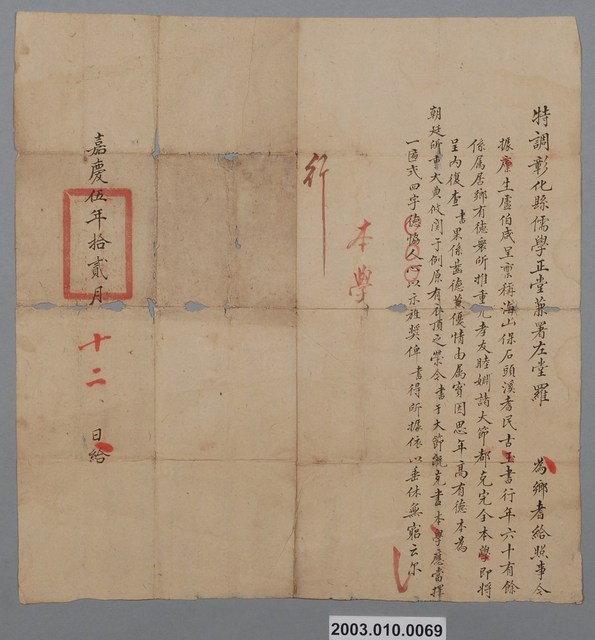 特調彰化縣儒學正堂兼署左堂羅　為鄉耆給照事今
據廩生盧伯咸呈稟稱海山保石頭溪耆民古玉書行年六十有餘
係属居鄉有德衆所推重凡孝友睦婣諸大節都克完全本學即將
呈內復查書果係齒德兼優情由属實因思年高有德本為
朝廷所重大賓攸関于例原有衣頂之榮今書于大節既克書本學應當擇
一匾式四字德協人心以示旌奬俾書得所據依以垂休無窮云尔
本學
行
嘉慶伍年拾貳月十二、日給
2003.010.0069